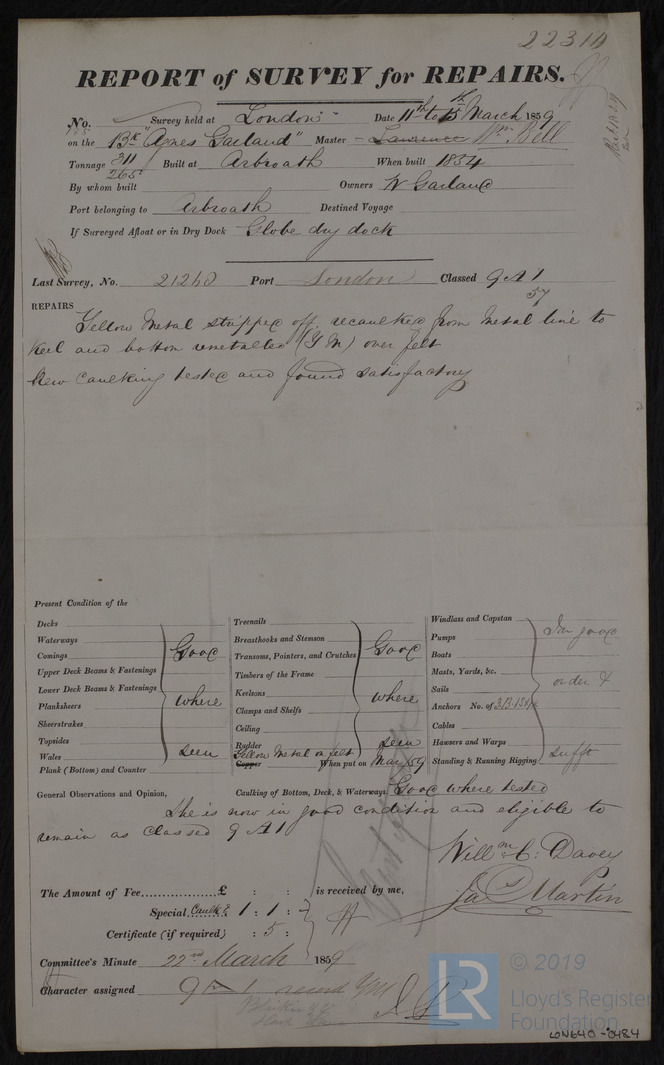 22314
REPORT of SURVEY for REPAIRS.
No. Survey held at London Date 11th to 15th March 1859
on the Bk "Agnes Garland" Master Lawrence Wm Bell
Tonnage 311 Built at Arbroath When built 1834
265
By whom built Owners W Garland
Port belonging to Arbroath Destined Voyage
If Surveyed Afloat or in Dry Dock Globe dry dock
Last Survey, No. 21240 Port London Classed 9 A 1
57
REPAIRS
Yellow Metal stripped off, recaulked from metal line to
keel and bottom remetalled (Y M) over felt
New caulking tested and found satisfactory
Present Condition of the
Decks
Waterways
Comings
Upper Deck Beams & Fastenings
Lower Deck Beams & Fastenings
Planksheers
Sheerstrakes
Topsides
Wales
Plank (Bottom) and Counter
Good
where
seen
Treenails
Breasthooks and Stemson
Transoms, Pointers, and Crutches
Timbers of the Frame
Keelsons
Clamps and Shelfs
Ceiling
Rudder
Good
where
seen
Yellow Metal on felt
Copper When put on Mar /59
Windlass and Capstan
Pumps
Boats
Masts, Yards, &c.
Sails
Anchors No. of 3B.
Cables
Hawsers and Warps
Standing & Running Rigging
In good
order &
sufft
General Observations and Opinion, Caulking of Bottom, Deck, & Waterways Good where tested
She is now in good condition and eligible to
remain as Classed 9 A 1
Willm C. Davey
Jas Martin
The Amount of Fee £ : : is received by me,
Special Caulkg 1 : 1 : -
Certificate (if required) : 5 :
Committee's Minute 22nd March 1859
Character assigned 9 A 1
© 2019
LR
Lloyd's Register
Foundation
LON640-0484